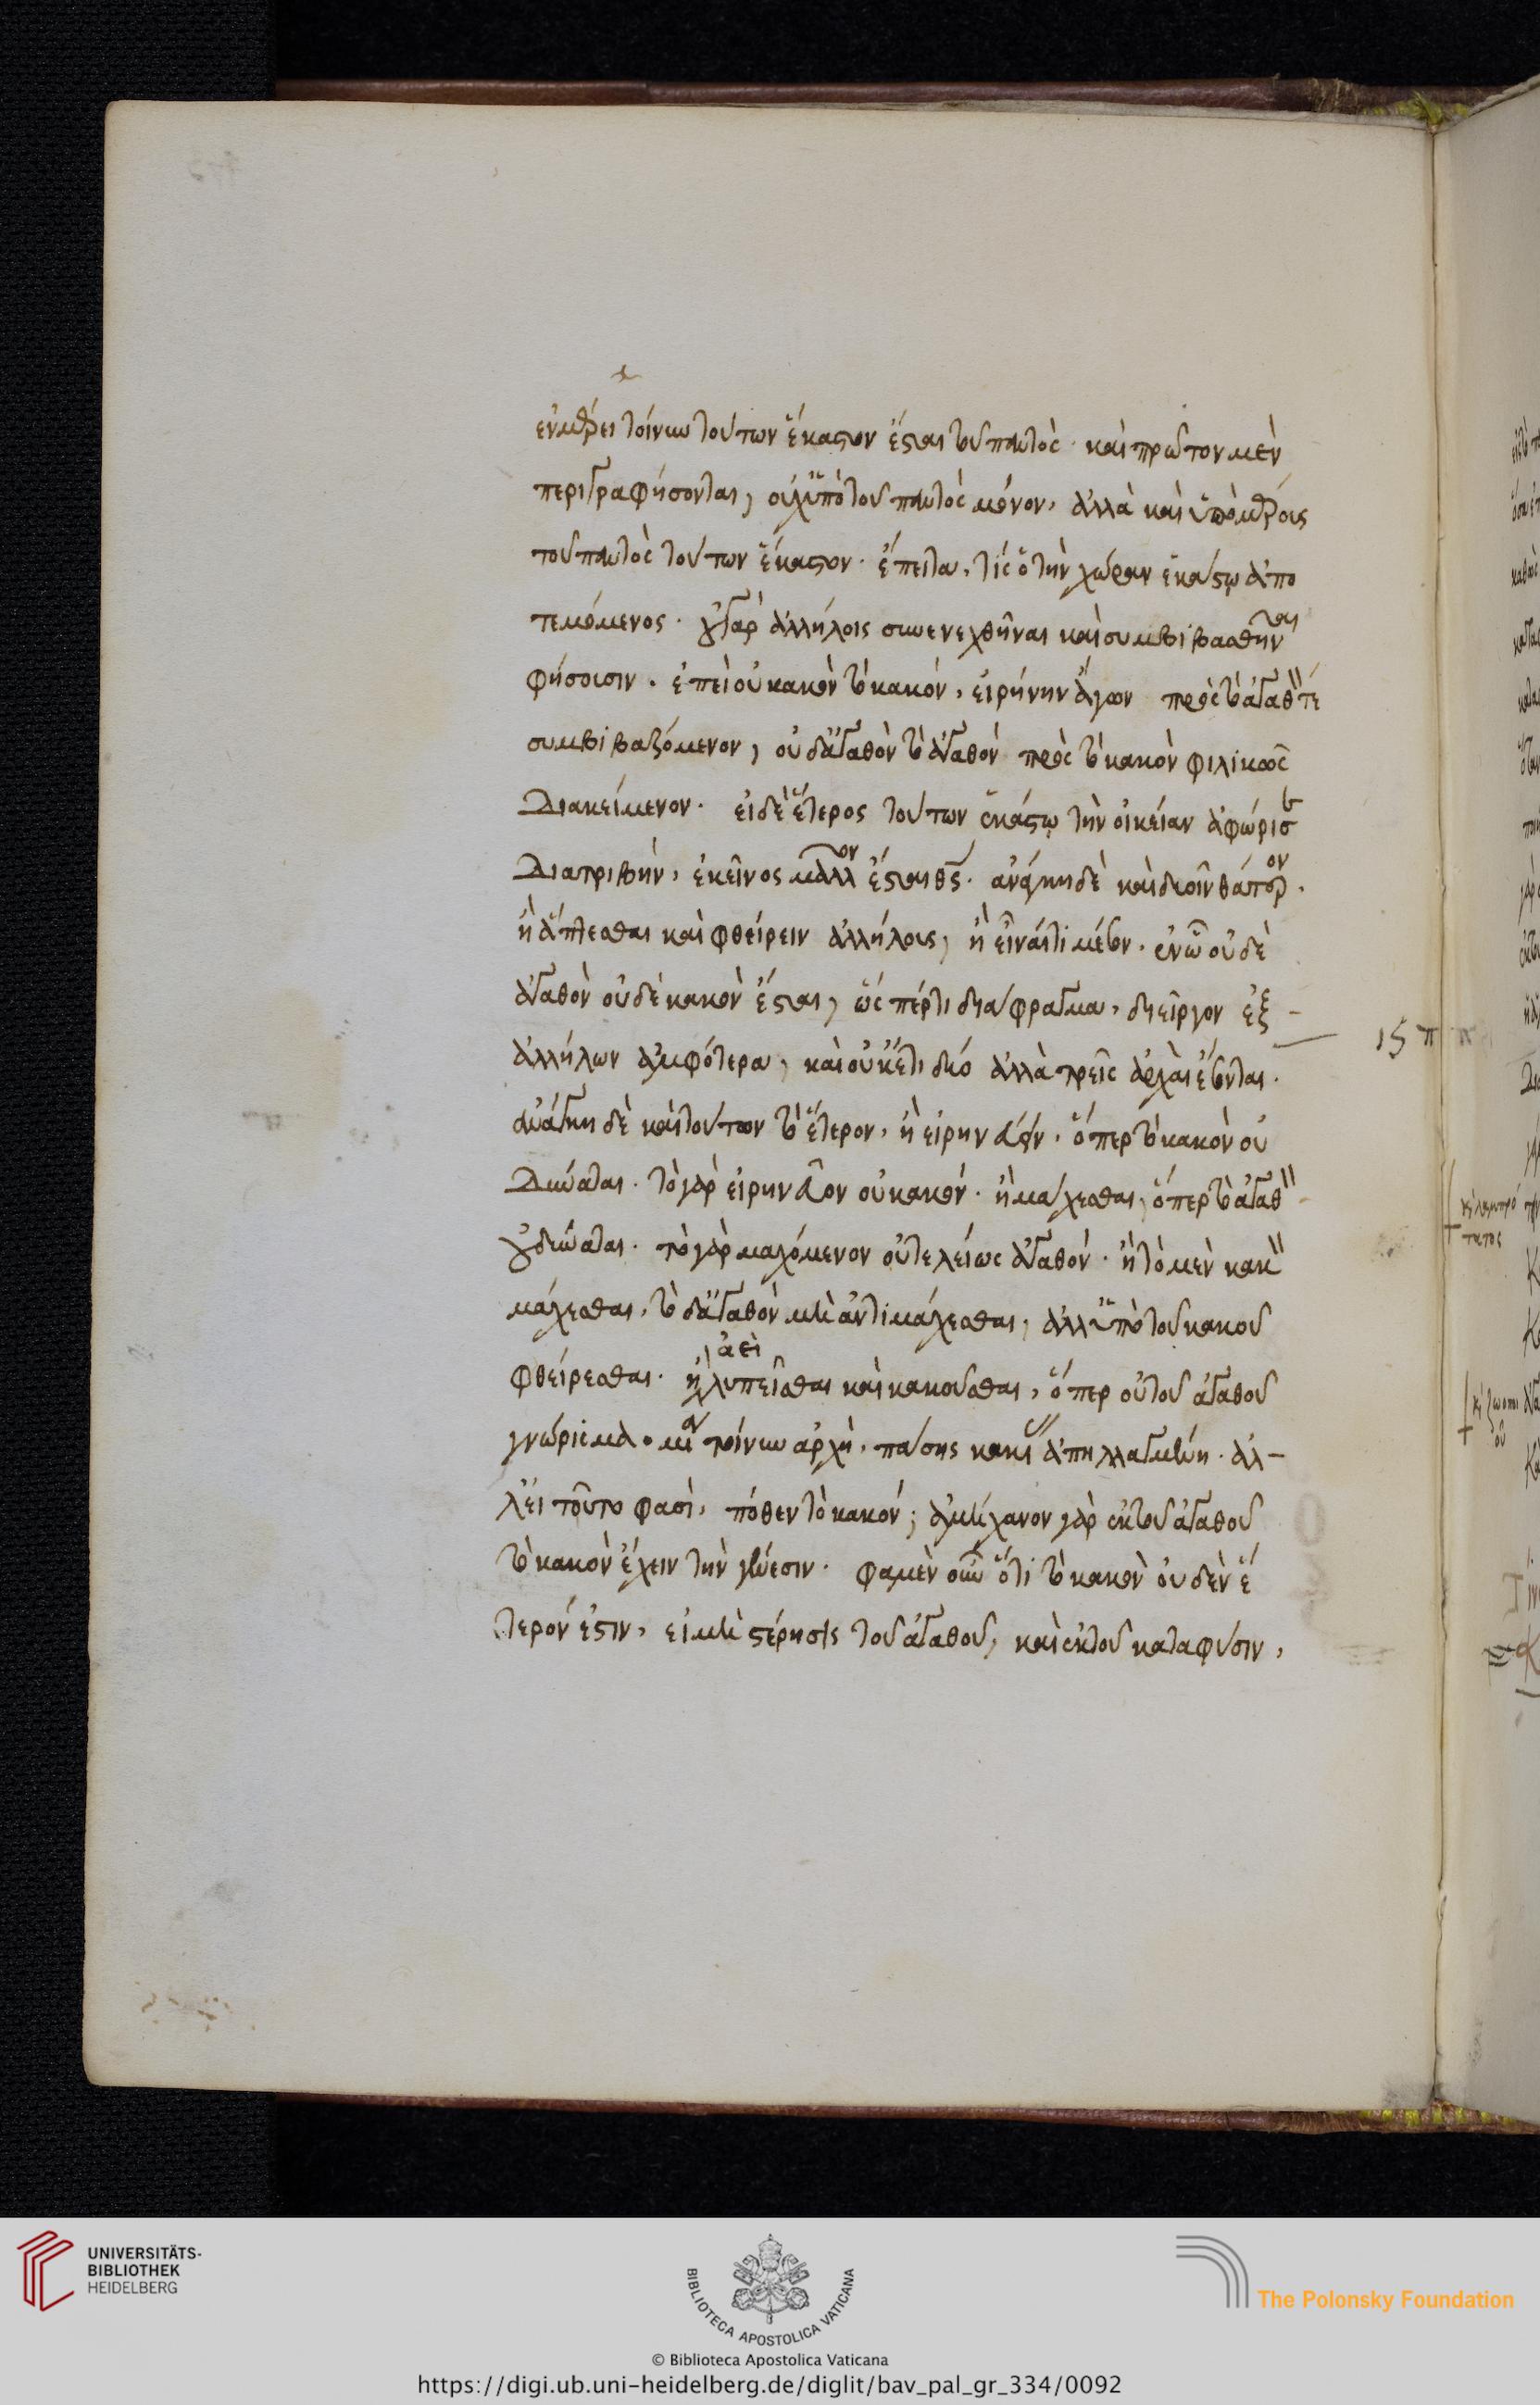 ἐν μέρει τοίνυν τούτων ἕκαστον ἔσται τοῦ παντός· καὶ πρῶτον μὲν
περιγραφήσονται, οὐχ ὑπὸ τοῦ παντὸς μόνον, ἀλλὰ καὶ ὑπὸ μέρους
τοῦ παντὸς τούτων ἕκαστον· ἔπειτα, τίς ὁ τὴν χώραν ἑκάστῳ ἀπο
τεμόμενος· οὐ γὰρ ἀλλήλοις συνενεχθῆναι καὶ συμβιβασθῆναι
φήσουσιν· ἐπεὶ οὐ κακὸν τὸ κακόν, εἰρήνην ἄγον πρὸς τὸ ἀγαθόν τέ
συμβιβαζόμενον, οὐδ' ἀγαθὸν τὸ ἀγαθὸν πρὸς τὸ κακὸν φιλικῶς
διακείμενον· εἰ δὲ ἕτερος τούτων ἑκάστῳ τὴν οἰκείαν ἀφώρισε
διατριβήν, ἐκεῖνος μᾶλλον ἔσται θς· ἀνάγκη δὲ καὶ δυοῖν θάτερον·
ἢ ἅπτεσθαι καὶ φθείρειν ἀλλήλους, ἢ εἶναί τι μέσον, ἐν ᾧ οὐδὲ
ἀγαθὸν οὐδὲ κακὸν ἔσται, ὥσπέρ τι διάφραγμα, διεῖργον ἐξ
ἀλλήλων ἀμφότερα, καὶ οὐκέτι δύο ἀλλὰ τρεῖς ἀρχαὶ ἔσονται·
ἀνάγκη δὲ καὶ τούτων τὸ ἕτερον, ἢ εἰρηνεύειν, ὅπερ τὸ κακὸν οὐ
δύναται· τὸ γὰρ εἰρηνεῦον οὐ κακόν· ἢ μάχεσθαι, ὅπερ τὸ ἀγαθὸν
οὐ δύναται· τὸ γὰρ μαχόμενον οὐ τελείως ἀγαθόν· ἢ τὸ μὲν κακὸν
μάχεσθαι, τὸ δ' ἀγαθὸν μὴ ἀντιμάχεσθαι, ἀλλ' ὑπὸ τοῦ κακοῦ
φθείρεσθαι· ἢ ἀεὶ λυπεῖσθαι καὶ κακοῦσθαι, ὅπερ οὐ τοῦ ἀγαθοῦ
γνώρισμα· μία τοίνυν ἀρχή, πάσης κακίας ἀπηλλαγμένη· ἀλ-
λ' εἰ τοῦτο φασὶ, πόθεν τὸ κακόν; ἀμήχανον γὰρ ἐκ τοῦ ἀγαθοῦ
τὸ κακὸν ἔχειν τὴν γένεσιν· φαμὲν οὖν ὅτι τὸ κακὸν οὐδὲν ἕ
τερόν ἐστιν, εἰ μὴ στέρησις τοῦ ἀγαθοῦ, καὶ ἐκ τοῦ κατὰ φύσιν,
UNIVERSITÄTS-
BIBLIOTHEK
HEIDELBERG
BIBLIOTECA APOSTOLICA VATICANA
The Polonsky Foundation
© Biblioteca Apostolica Vaticana
https://digi.ub.uni-heidelberg.de/diglit/bav_pal_gr_334/0092